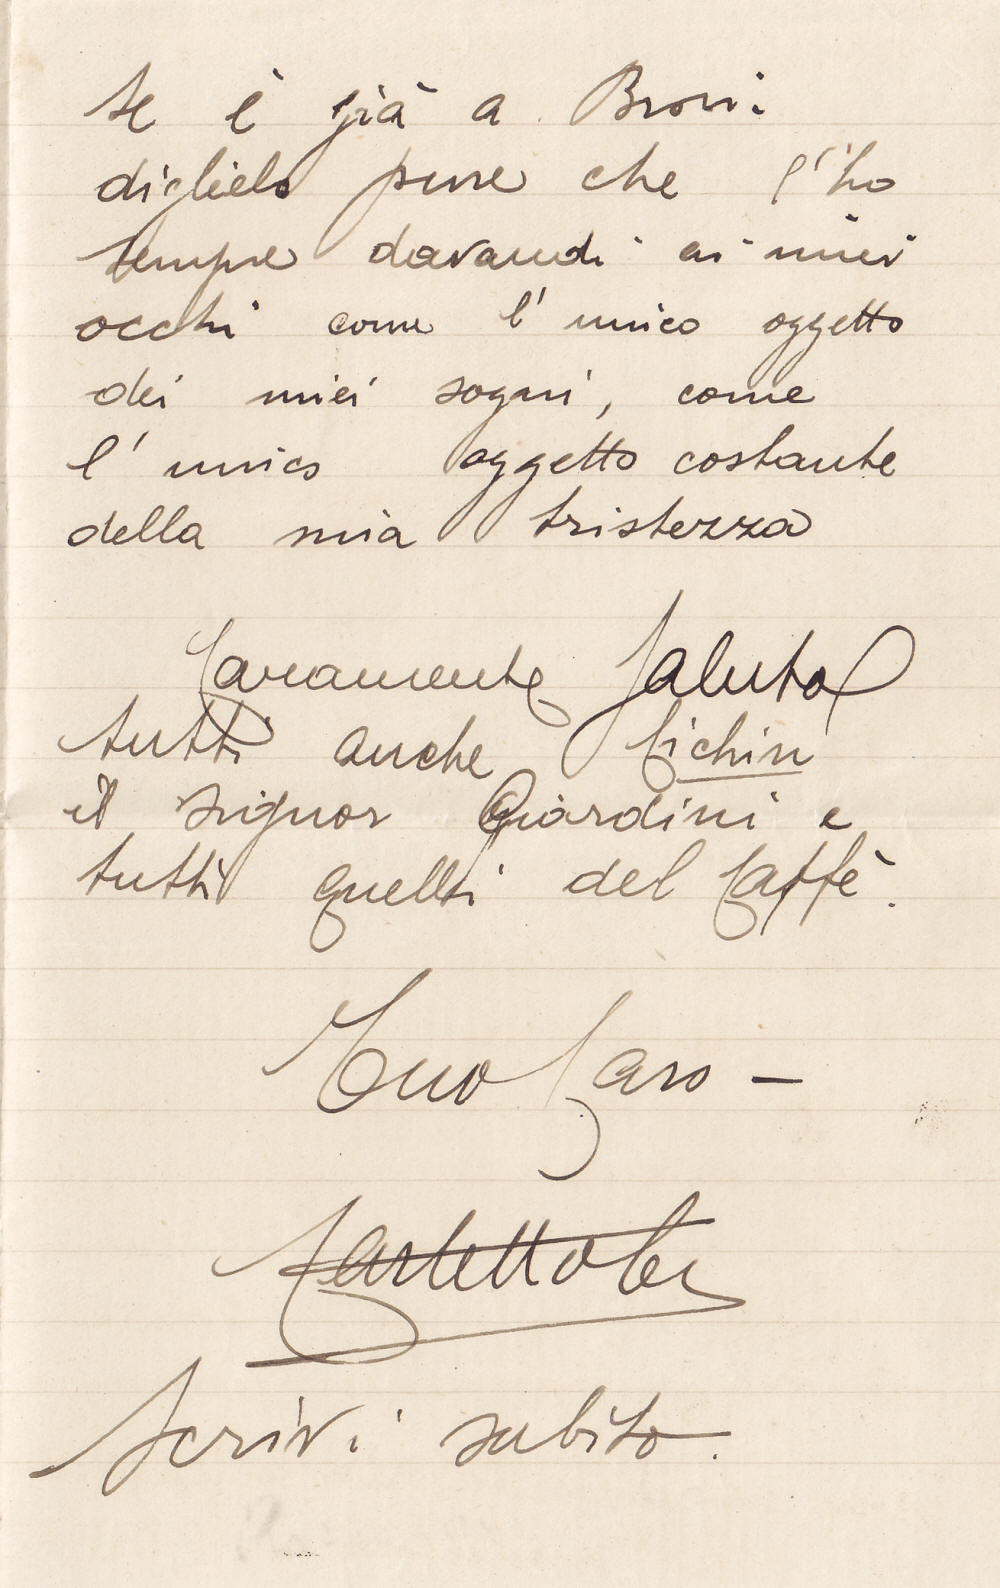 se è già a Broni
diglielo pure che l'ho
sempre davandi ai miei
occhi come l'unico oggetto
dei miei sogni, come
l'unico oggetto costante
della mia tristezza
Caramente Saluta
tutti anche Cichin
il signor Giardini e
tutti quelli del Caffè.
Tuo Caro –
Scrivi subito.